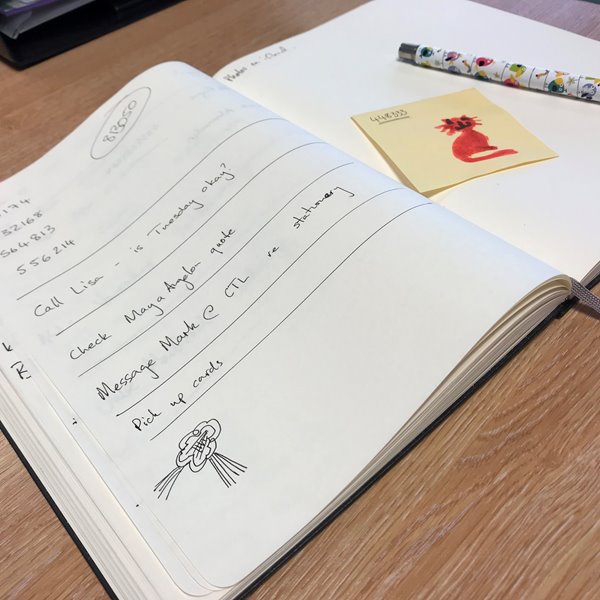 813050
174
32168
564813
556214
Call Lisa - is Tuesday okay?
Check Maya Angelou quote
Message Mark @ CTL re stationery
Pick up cards
k
R
Photos on iCloud
448333